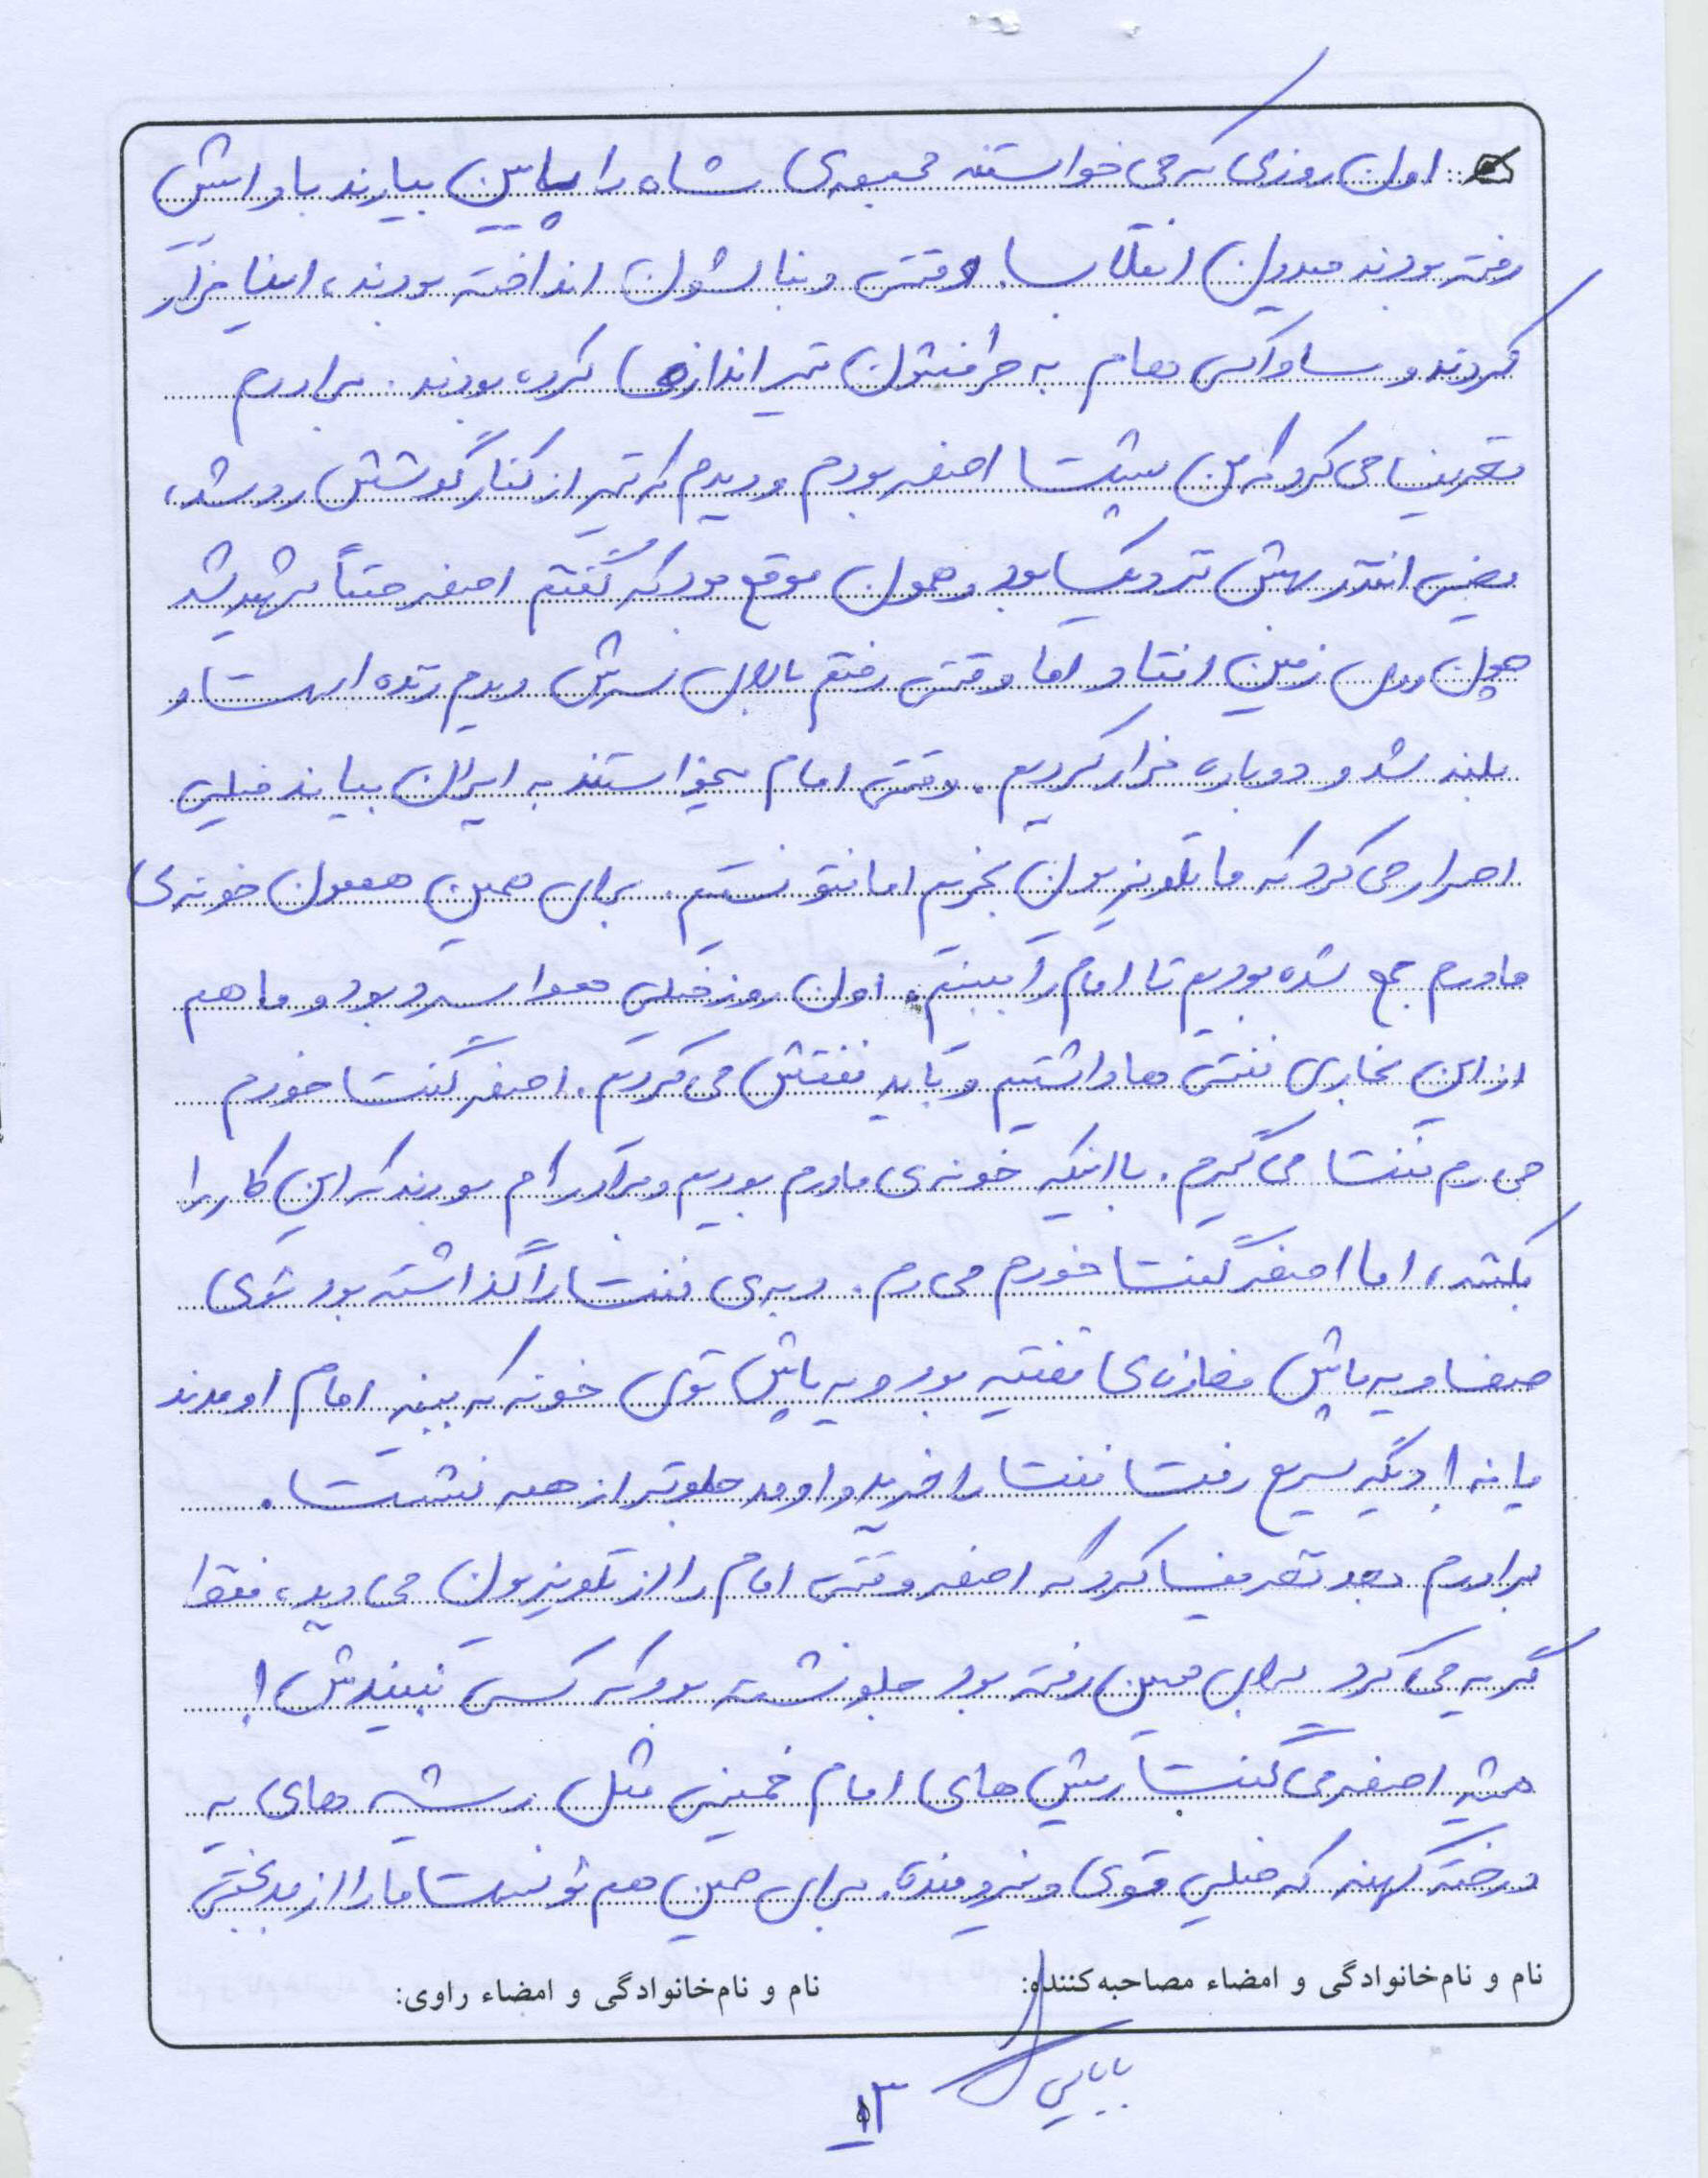 اولن روزی که می خواستند مجسمه‌ی شاه را پایین بیارند با داداش
رفته بودند میدون انقلاب. وقتی دنبالشون انداخته بودند، اینا فرار
کردند و ساواکی هام به طرفشون تیراندازی کرده بودند. برادرم
تعریف می کرد که من پشت اصغر بودم و دیدم که تیر از کنار گوشش رد شد،
یعنی انقدر بهش نزدیک بود و همون موقع بود که گفتم اصغر حتماً شهید شد
چون روی زمین افتاد اما وقتی رفتم بالای سرش دیدم زنده است و
بلند شد و دوباره فرار کردیم. وقتی امام میخواستند به ایران بیاند خیلی
اصرار می کرد که ما تلویزیون بخریم اما نتونستیم. برای همین هممون خونه‌ی
مادرم جمع شده بودیم تا امام را ببینیم. اون روز خیلی هوا سرد بود و ما هم
از این بخاری نفتی ها داشتیم و باید نفتش می کردیم. اصغر گفت خودم
می رم نفت می گیرم. با اینکه خونه‌ی مادرم بودیم و برادرام بودند که این کار را
بکنند، اما اصغر گفت خودم می رم. دبه‌ی نفت را گذاشته بود توی
صف و یه پاش مغازه‌ی نفتیه بود و یه پاش توی خونه که ببینه امام اومدند
یا نه! دیگه سریع رفت نفت را خرید و اومد جلوتر از همه نشست.
برادرم بعد تعریف کرد که اصغر وقتی امام را از تلویزیون می دید، فقط
گریه می کرد برای همین رفته بود جلو نشسته بود که کسی نبیندش!
همش اصغر می گفت ریش های امام خمینی مثل ریشه های یه
درخته کهنه که خیلی قوی و نیرومنده. برای همین هم تونست ما را از بدبختی
نام و نام‌خانوادگی و امضاء مصاحبه‌کننده:
نام و نام‌خانوادگی و امضاء راوی:
بابایی
۱۳